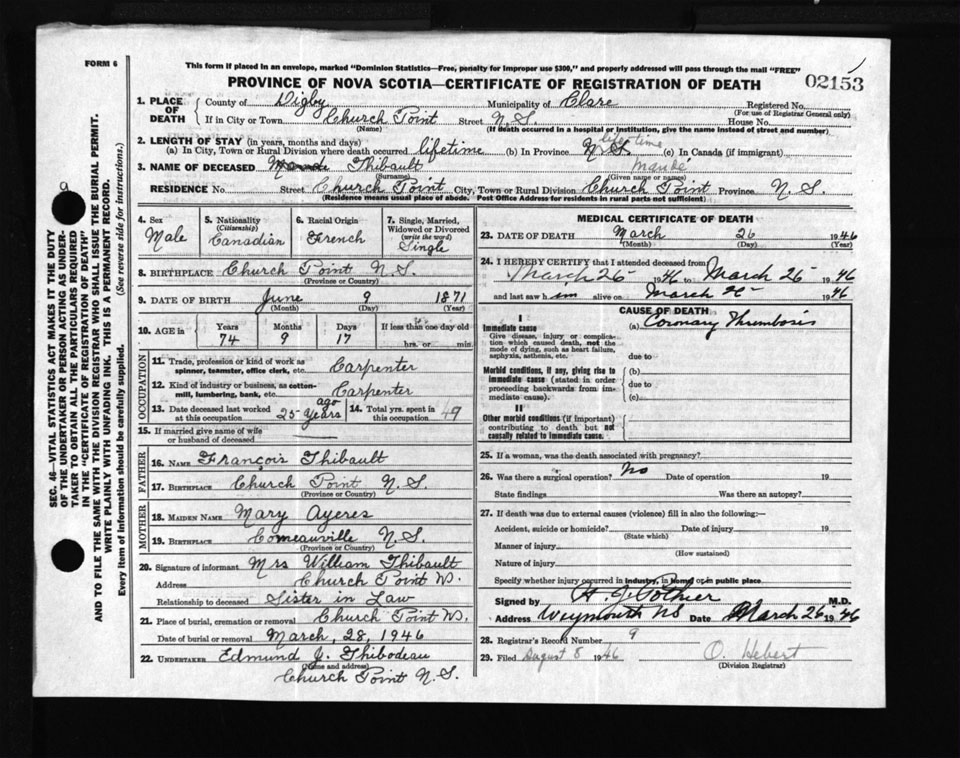 FORM 6
This form if placed in an envelope, marked "Dominion Statistics—Free, penalty for improper use $300," and properly addressed will pass through the mail "FREE"
PROVINCE OF NOVA SCOTIA—CERTIFICATE OF REGISTRATION OF DEATH
02153
1. PLACE OF DEATH
County of Digby Municipality of Clare Registered No.
(For use of Registrar General only)
If in City or Town Church Point Street N.S. House No.
(Name) (If death occurred in a hospital or institution, give the name instead of street and number)
2. LENGTH OF STAY (in years, months and days)
(a) In City, Town or Rural Division where death occurred lifetime (b) In Province N.S. lifetime (c) In Canada (if immigrant)
3. NAME OF DECEASED Thibault Mandé
(Surname) (Given name or names)
RESIDENCE No. Street Church Point City, Town or Rural Division Church Point Province N.S.
(Residence means usual place of abode. Post Office Address for residents in rural parts not sufficient)
4. Sex
Male
5. Nationality
(Citizenship)
Canadian
6. Racial Origin
French
7. Single, Married, Widowed or Divorced
(write the word)
Single
8. BIRTHPLACE Church Point N.S.
(Province or Country)
9. DATE OF BIRTH June 9 1871
(Month) (Day) (Year)
10. AGE in
Years Months Days If less than one day old
74 9 17 hrs. or min.
OCCUPATION
11. Trade, profession or kind of work as
spinner, teamster, office clerk, etc. Carpenter
12. Kind of industry or business, as cotton-
mill, lumbering, bank, etc. Carpenter
13. Date deceased last worked
at this occupation 25 Years ago
14. Total yrs. spent in
this occupation 49
15. If married give name of wife
or husband of deceased
FATHER
16. NAME François Thibault
17. BIRTHPLACE Church Point N.S.
(Province or Country)
MOTHER
18. MAIDEN NAME Mary Ayeres
19. BIRTHPLACE Comeauville N.S.
(Province or Country)
20. Signature of informant Mrs William Thibault
Address Church Point N.
Relationship to deceased Sister in Law
21. Place of burial, cremation or removal Church Point N.S.
Date of burial or removal March, 28, 1946
22. UNDERTAKER Edmund J. Thibodeau
(Name and address)
Church Point N.S.
MEDICAL CERTIFICATE OF DEATH
23. DATE OF DEATH March 26 1946
(Month) (Day) (Year)
24. I HEREBY CERTIFY that I attended deceased from
March 25 1946 March 25 1946
and last saw him alive on March 25 1946
CAUSE OF DEATH
I
Immediate cause (a) Coronary Thrombosis
Give disease, injury or complica-
tion which caused death, not the
mode of dying, such as heart failure,
asphyxia, asthenia, etc. due to
Morbid conditions, if any, giving rise to (b)
immediate cause (stated in order due to
proceeding backwards from im-
mediate cause). (c)
II
Other morbid conditions (if important)
contributing to death but not
causally related to immediate cause.
25. If a woman, was the death associated with pregnancy?
26. Was there a surgical operation? No Date of operation 19
State findings Was there an autopsy?
27. If death was due to external causes (violence) fill in also the following:—
Accident, suicide or homicide? Date of injury 19
(State which)
Manner of injury
(How sustained)
Nature of injury
Specify whether injury occurred in industry, in home or in public place
Signed by H. J. Pothier M.D.
Address Weymouth NS Date March 26 1946
28. Registrar's Record Number 9
29. Filed August 8 1946 O. Hebert
(Division Registrar)
SEC. 46—VITAL STATISTICS ACT MAKES IT THE DUTY
OF THE UNDERTAKER OR PERSON ACTING AS UNDER-
TAKER TO OBTAIN ALL THE PARTICULARS REQUIRED
IN THE "CERTIFICATE OF REGISTRATION OF DEATH"
AND TO FILE THE SAME WITH THE DIVISION REGISTRAR WHO SHALL ISSUE THE BURIAL PERMIT.
WRITE PLAINLY WITH UNFADING INK. THIS IS A PERMANENT RECORD.
Every item of information should be carefully supplied. (See reverse side for instructions.)